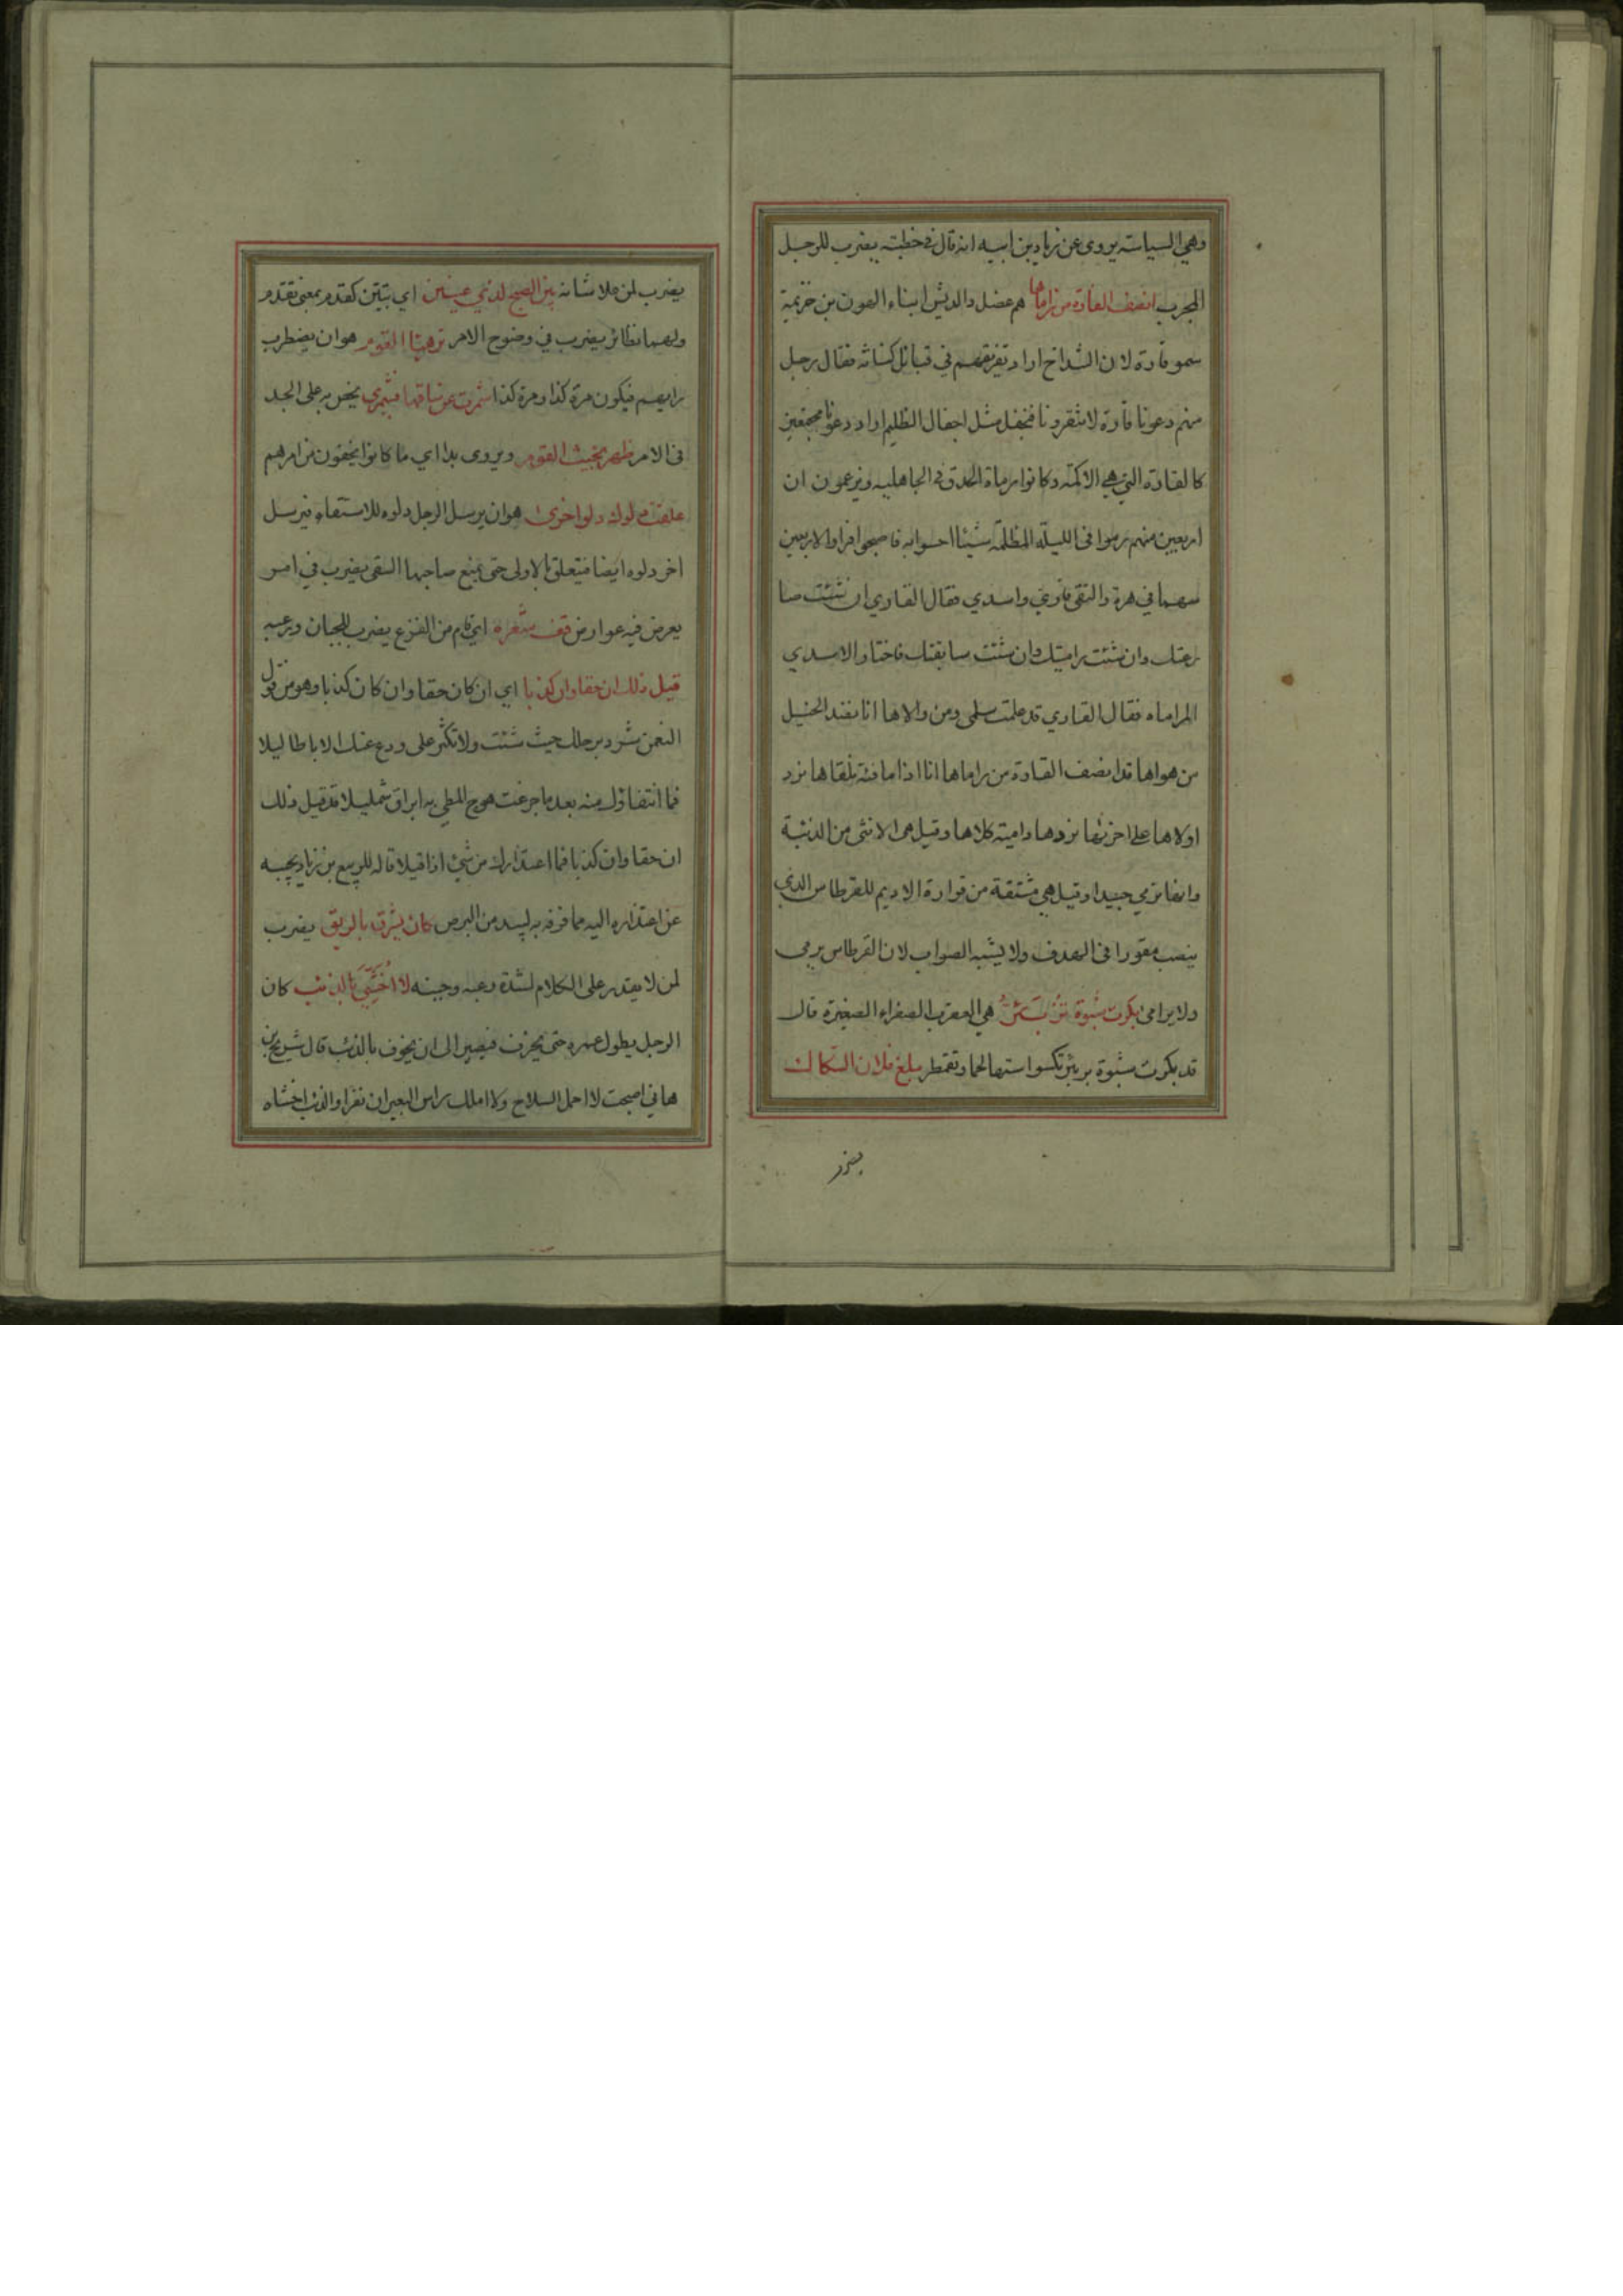 وهي السياسة يروى عن زياد بن ابيه انه قال في خطبته يضرب للرجل
المجرب انصف القارة من راماها هم عضل والديش ابناء الهون بن خزيمة
سموقارة لان الشداخ اراد تفريقهم في قبائل كنانة فقال رجل
منهم دعونا قارة لا تنفرونا فنجفل مثل اجفال الظليم اراد دعونا مجتمعين
كالقارة التي هي الاكمة وكانوا رماة الحدق في الجاهلية ويزعمون ان
اربعين منهم رموا في الليلة المظلمة شيئا احسوا به فاصبحوا فراوا الاربعين
سهما في هرة والتقى قاري واسدي فقال القاري ان شئت صا
رعتك وان شئت راميتك وان شئت سابقتك فاختار الاسدي
المراماه فقال القاري قد علمت سلمى ومن والاها انا نصد الخيل
من هواها قد انصف القارة من راماها انا اذا ما فئة نلقاها نرد
اولاها على اخرىها نردها دامية كلاها وقيل هي الانثى من الدببة
وانها ترمي جيدا وقيل هي مشتقة من قوارة الاديم للقرطاس الذي
ينصب مقورا في الهدف ولا يشبه الصواب لان القرطاس يرمى
ولا يرامي بكرت شبوة تزبئر هي العقرب الصفراء الصغيرة قال
قد بكرت شبوة تزبئر تكسوا استها لحما وتقمطر بلغ فلان السكاك
يضرب
يضرب لمن علا شانه بين الصبح لذي عينين اي تبين كقدم بمعنى تقدم
ولهما نظائر يضرب في وضوح الامر ترهيا القوم هو ان يضطرب
رايهم فيكون مرة كذا ومرة كذا شمرت عن ساقها فشمري يحض به على الجد
في الامر ظهر نجيث القوم ويروى بدا اي ما كانوا يخفون من امرهم
علقت دلوك دلو اخرى هو ان يرسل الرجل دلوه للاستقاء فيرسل
اخر دلوه ايضا فيتعلق بالاولى حتى يمنع صاحبها السقي يضرب في امر
يعرض فيه عوارض قف شعره اي قام من الفزع يضرب للجبان ورعبه
قيل ذلك ان حقا وان كذبا اي ان كان حقا وان كان كذبا وهو من قول
النعمن شرد برحلك حيث شئت ولا تكثر على ودع عنك الاباطيلا
فما انتفاؤك منه بعد ما جزعت هوج المطي به ابراق شمليلا قد قيل ذلك
ان حقا وان كذبا فما اعتذارك من شئ اذا قيلا قاله للربيع بن زياد يجيبه
عن اعتذاره اليه مما قرفه به لبيد من البرص كان يشرق بالريق يضرب
لمن لا يقدر على الكلام لشدة رعبه وجبنه لا اخشى بالذئب كان
الرجل يطول عمره حتى يخرف فيصير الى ان يخوف بالذئب قال شريح بن
هاني اصبحت لا احمل السلاح ولا املك راس البعير ان نفرا والذئب اخشاه